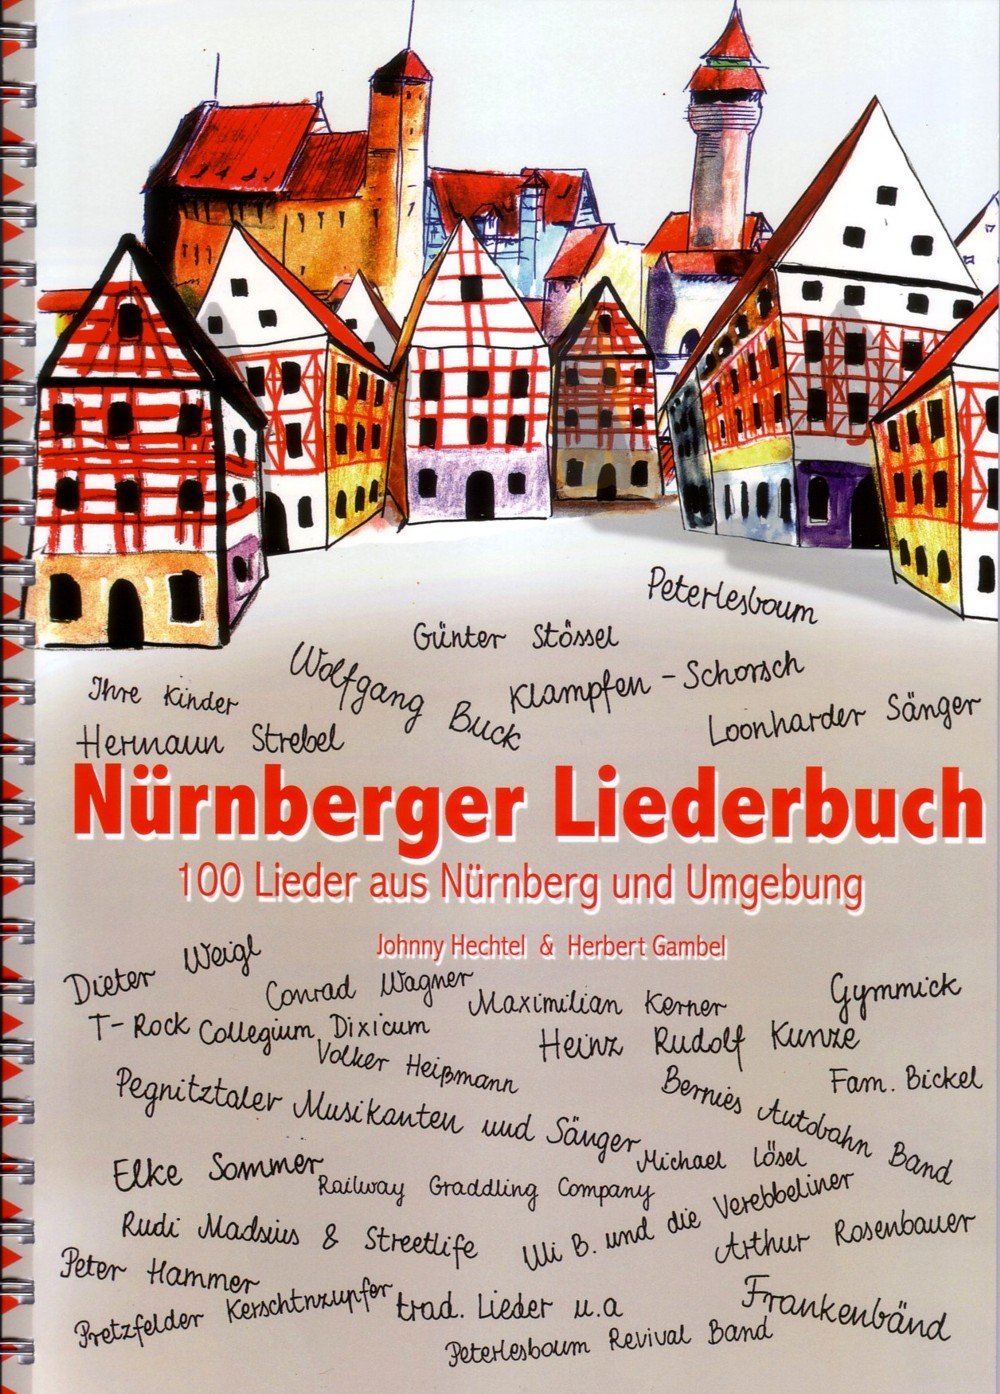 Peterlesboum
Günter Stössel
Wolfgang Buck
Klampfen-Schorsch
Ihre Kinder
Loonharder Sänger
Hermann Strebel
Nürnberger Liederbuch
100 Lieder aus Nürnberg und Umgebung
Johnny Hechtel & Herbert Gambel
Dieter Weigl
Conrad Wagner
Maximilian Kerner
Gymmick
T-Rock
Collegium Dixicum
Heinz Rudolf Kunze
Volker Heißmann
Fam. Bickel
Pegnitztaler Musikanten und Sänger
Bernies Autobahn Band
Michael Lösel
Elke Sommer
Railway Graddling Company
Rudi Madsius & Streetlife
Wi B. und die Verebbeliner
Arthur Rosenbauer
Peter Hammer
Pretzfelder Kerschtnzupfer
trad. Lieder u.a
Frankenbänd
Peterlesboum Revival Band